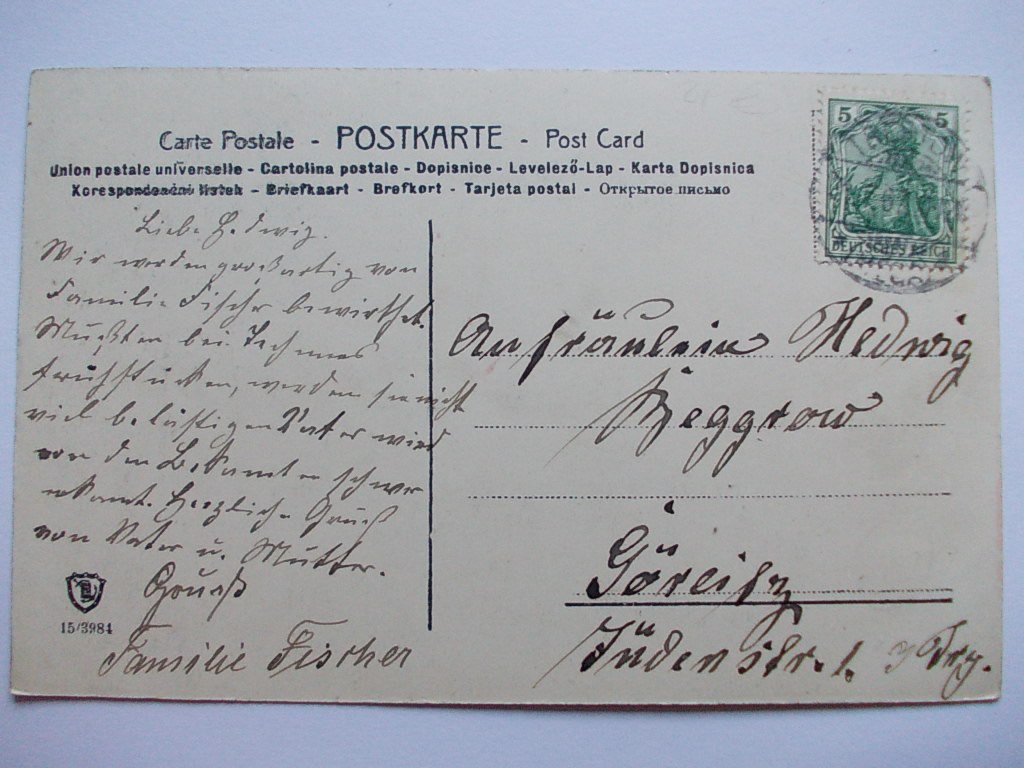 Carte Postale - POSTKARTE - Post Card
Union postale universelle - Cartolina postale - Dopisnice - Levelező-Lap - Karta Dopisnica
Korespondenční lístek - Briefkaart - Brefkort - Tarjeta postal - Открытое письмо
5 5
DEUTSCHES REICH
Liebe Hedwig.
Wir werden großartig von
Familie Fischer bewirthet.
Mußten bei
frühstücken, werden sie nicht
viel belästigen Vater wird
von den Bekannten schwer
erkannt. Herzliche Gruß
von Vater u. Mutter.
Gruß
Familie Fischer
15/3984
An Fräulein Hedwig
Beggrow
Görlitz
Jüdenstr. 1. 3 Trp.